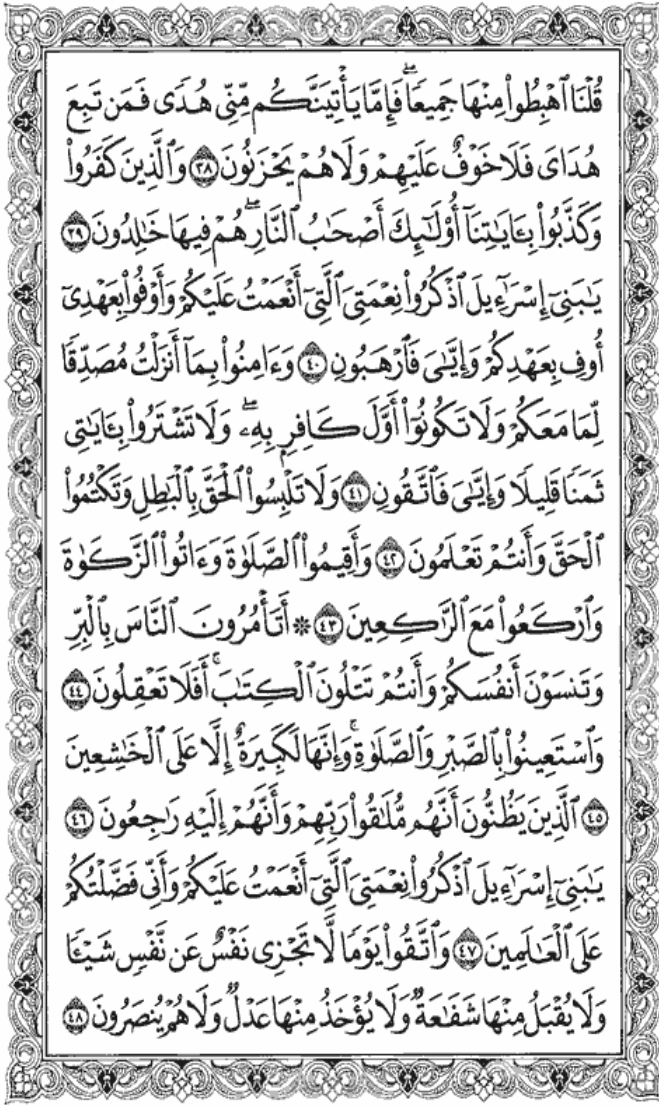 قُلۡنَا ٱهۡبِطُواْ مِنۡهَا جَمِيعٗاۖ فَإِمَّا يَأۡتِيَنَّكُم مِّنِّي هُدٗى فَمَن تَبِعَ
هُدَايَ فَلَا خَوۡفٌ عَلَيۡهِمۡ وَلَا هُمۡ يَحۡزَنُونَ ٣٨ وَٱلَّذِينَ كَفَرُواْ
وَكَذَّبُواْ بِـَٔايَٰتِنَآ أُوْلَٰٓئِكَ أَصۡحَٰبُ ٱلنَّارِۖ هُمۡ فِيهَا خَٰلِدُونَ ٣٩
يَٰبَنِيٓ إِسۡرَٰٓءِيلَ ٱذۡكُرُواْ نِعۡمَتِيَ ٱلَّتِيٓ أَنۡعَمۡتُ عَلَيۡكُمۡ وَأَوۡفُواْ بِعَهۡدِيٓ
أُوفِ بِعَهۡدِكُمۡ وَإِيَّٰيَ فَٱرۡهَبُونِ ٤٠ وَءَامِنُواْ بِمَآ أَنزَلۡتُ مُصَدِّقٗا
لِّمَا مَعَكُمۡ وَلَا تَكُونُوٓاْ أَوَّلَ كَافِرِۭ بِهِۦۖ وَلَا تَشۡتَرُواْ بِـَٔايَٰتِي
ثَمَنٗا قَلِيلٗا وَإِيَّٰيَ فَٱتَّقُونِ ٤١ وَلَا تَلۡبِسُواْ ٱلۡحَقَّ بِٱلۡبَٰطِلِ وَتَكۡتُمُواْ
ٱلۡحَقَّ وَأَنتُمۡ تَعۡلَمُونَ ٤٢ وَأَقِيمُواْ ٱلصَّلَوٰةَ وَءَاتُواْ ٱلزَّكَوٰةَ
وَٱرۡكَعُواْ مَعَ ٱلرَّٰكِعِينَ ٤٣ ۞ أَتَأۡمُرُونَ ٱلنَّاسَ بِٱلۡبِرِّ
وَتَنسَوۡنَ أَنفُسَكُمۡ وَأَنتُمۡ تَتۡلُونَ ٱلۡكِتَٰبَۚ أَفَلَا تَعۡقِلُونَ ٤٤
وَٱسۡتَعِينُواْ بِٱلصَّبۡرِ وَٱلصَّلَوٰةِۚ وَإِنَّهَا لَكَبِيرَةٌ إِلَّا عَلَى ٱلۡخَٰشِعِينَ
٤٥ ٱلَّذِينَ يَظُنُّونَ أَنَّهُم مُّلَٰقُواْ رَبِّهِمۡ وَأَنَّهُمۡ إِلَيۡهِ رَٰجِعُونَ ٤٦
يَٰبَنِيٓ إِسۡرَٰٓءِيلَ ٱذۡكُرُواْ نِعۡمَتِيَ ٱلَّتِيٓ أَنۡعَمۡتُ عَلَيۡكُمۡ وَأَنِّي فَضَّلۡتُكُمۡ
عَلَى ٱلۡعَٰلَمِينَ ٤٧ وَٱتَّقُواْ يَوۡمٗا لَّا تَجۡزِي نَفۡسٌ عَن نَّفۡسٖ شَيۡـٔٗا
وَلَا يُقۡبَلُ مِنۡهَا شَفَٰعَةٞ وَلَا يُؤۡخَذُ مِنۡهَا عَدۡلٞ وَلَا هُمۡ يُنصَرُونَ ٤٨